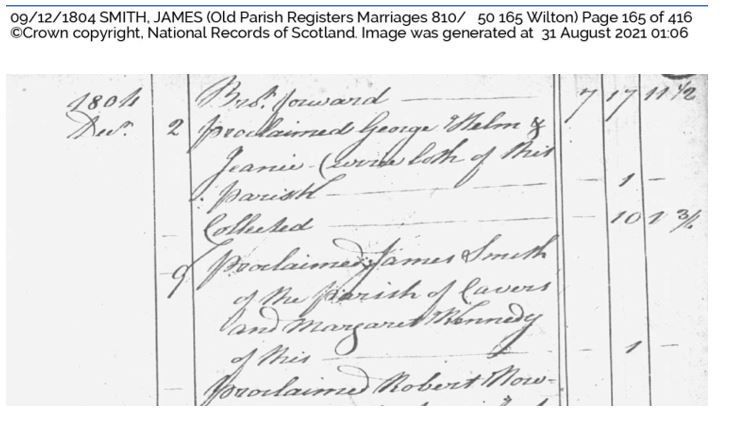 09/12/1804 SMITH, JAMES (Old Parish Registers Marriages 810/ 50 165 Wilton) Page 165 of 416
©Crown copyright, National Records of Scotland. Image was generated at 31 August 2021 01:06
1804 Bro.t forward 7 17 11 1/2
Decr. 2 proclaimed George Helm &
Jeanie both of this
parish - 1 -
Collected - 10 1 3/4
9 Proclaimed James Smith
of the Parish of Cavers
and Margaret Kennedy
of this - 1 -
proclaimed Robert